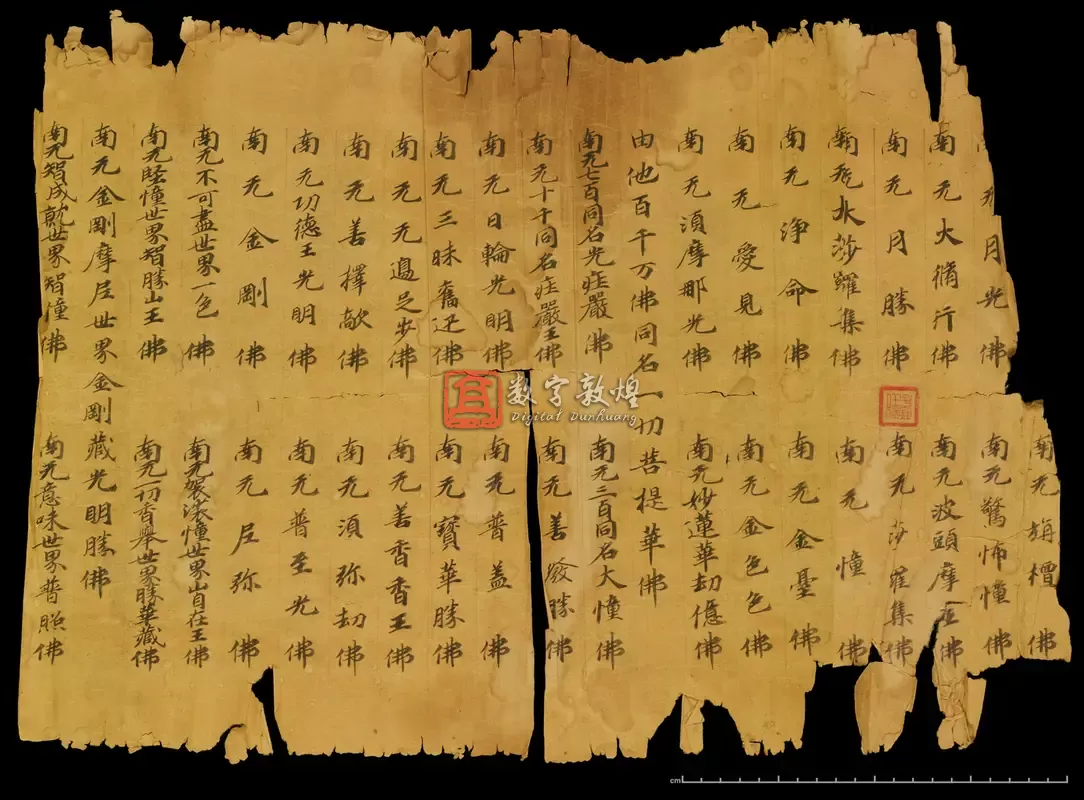 南无栴檀佛
无月光佛　南无驚怖幢佛
南无大脩行佛　南无波頭摩座佛
南无月勝佛　南无莎羅集佛
南无水莎羅集佛　南无幢佛
南无淨命佛　南无金臺佛
南无愛見佛　南无金色色佛
南无湏摩那光佛　南无妙蓮華劫億佛
由他百千万佛同名一切菩提華佛
南无七百同名光莊嚴佛　南无三百同名大幢佛
南无十千同名莊嚴王佛　南无善發勝佛
南无日輪光明佛　南无普蓋佛
南无三昧奮迅佛　南无寶華勝佛
南无无邊足步佛　南无善香香王佛
南无善擇敵佛　南无湏弥劫佛
南无功德王光明佛　南无普至光佛
南无金剛佛　南无层弥佛
南无不可盡世界一色佛　南无袈裟幢世界山自在王佛
南无堅幢世界智勝山王佛　南无一切香舉世界勝華藏佛
南无金剛摩层世界金剛藏光明勝佛
南无智成就世界智幢佛　南无意味世界普照佛
数字敦煌
Digital Dunhuang